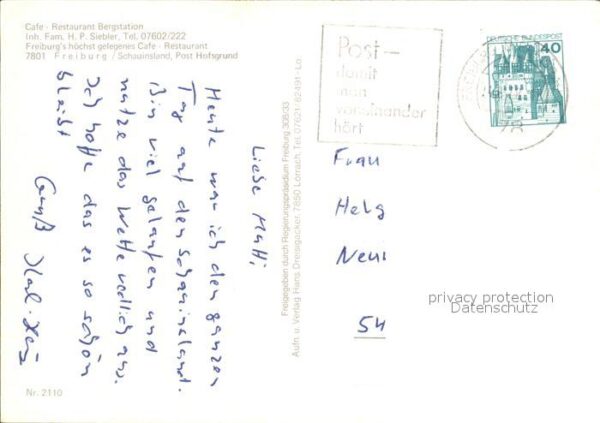 Cafe - Restaurant Bergstation
Inh. Fam. H. P. Siebler, Tel. 07602/222
Freiburg's höchst gelegenes Cafe - Restaurant
7801 Freiburg / Schauinsland, Post Hofsgrund
Liebe Mutti,
Heute war ich den ganzen
Tag auf dem Schauinsland.
Bin viel gelaufen und
nutze das Wetter redlich aus.
Ich hoffe das es so schön
bleibt
Gruß Karl-Heinz
Nr. 2110
Freigegeben durch Regierungspräsidium Freiburg 308/33
Aufn. u. Verlag Hans Dreisigacker, 7850 Lörrach, Tel. 07621-82491-Lo.
Post-
damit
man
voneinander
hört
DEUTSCHE BUNDESPOST
40
78
Frau
Helg
Neui
54
privacy protection
Datenschutz